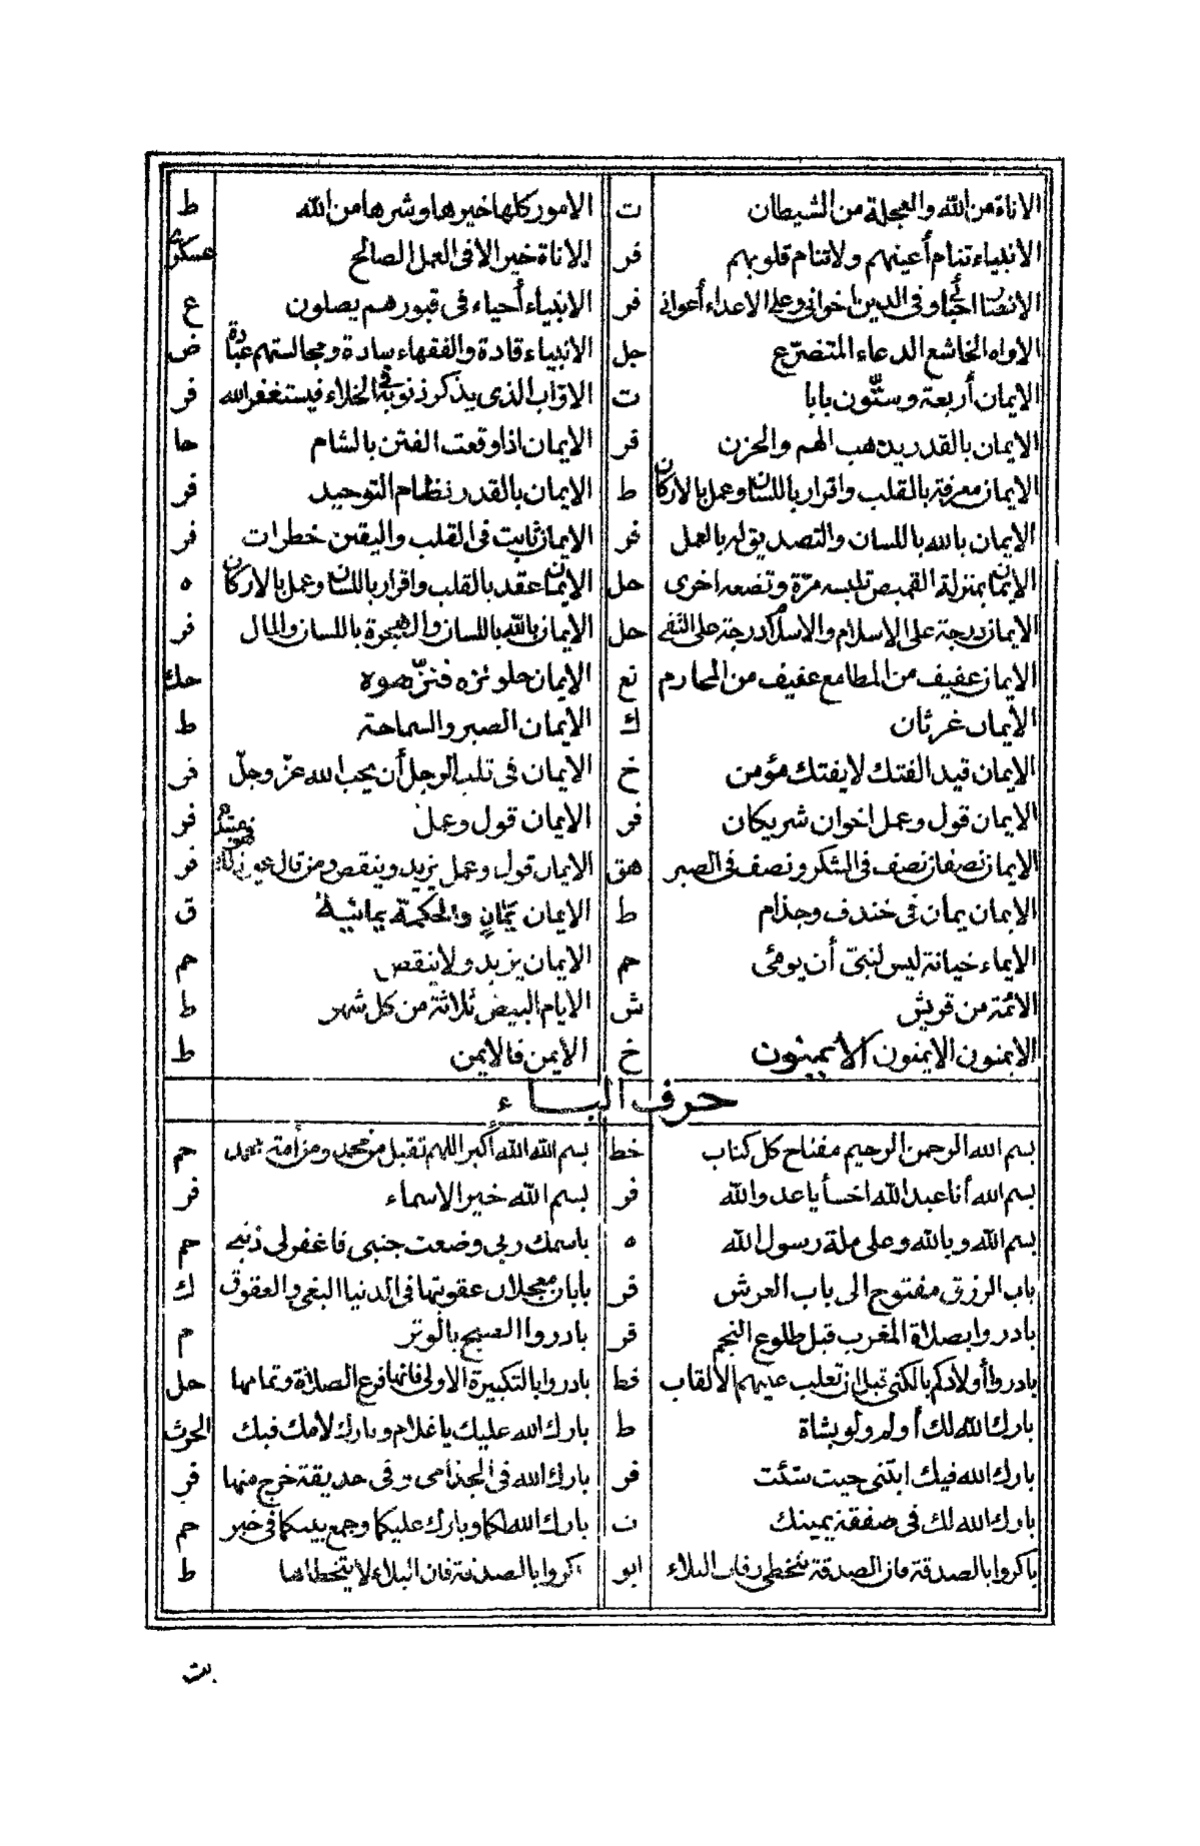 الاناة من الله والعجلة من الشيطان ت الامور كلها خيرها وشرها من الله ط
الانبياء تنام أعينهم ولا تنام قلوبهم فر الاناة خير الا فى العمل الصالح عسكرى
الانصار احبابى وفى الدين اخوانى وعلى الاعداء أعوانى فر الانبياء أحياء فى قبورهم يصلون ع
الاواه الخاشع الدعاء المتضرّع جل الانبياء قادة والفقهاء سادة ومجالستهم عبادة ض
الايمان أربعة وستّون بابا ت الاوّاب الذى يذكر ذنوبه فى الخلاء فيستغفر الله فر
الايمان بالقدر يذهب الهم والحزن فر الايمان اذا وقعت الفتن بالشام حا
الايمان معرفة بالقلب واقرار باللسان وعمل بالاركان ط الايمان بالقدر نظام التوحيد فر
الايمان بالله باللسان والتصديق له بالعمل فر الايمان ثابت فى القلب واليقين خطرات فر
الايمان بمنزلة القميص تلبسه مرّة وتضعه اخرى حل الايمان عقد بالقلب واقرار باللسان وعمل بالاركان ه
الايمان درجة على الاسلام والاسلام درجة على التقى حل الايمان بالله باللسان والهجرة باللسان والمال فر
الايمان عفيف من المطامع عفيف من المحارم نع الايمان حلو نزه فنزّهوه حك
الايمان غرثان ك الايمان الصبر والسماحة ط
الايمان قيد الفتك لا يفتك مؤمن خ الايمان فى قلب الرجل أن يحب الله عزّ وجلّ فر
الايمان قول وعمل اخوان شريكان فر الايمان قول وعمل فر
الايمان نصفان نصف فى الشكر ونصف فى الصبر هق الايمان قول وعمل يزيد وينقص ومن قال غير ذلك فهو مبتدع فر
الايمان يمان فى خندف وجذام ط الايمان يَمَانٍ والحكمة يمانية ق
الايماء خيانة ليس لنبىّ أن يومئ حم الايمان يزيد ولا ينقص حم
الائمة من قريش ش الايام البيض ثلاثة من كل شهر ط
الايمنون الايمنون الايمنون خ الايمن فالايمن ط
حرف الباء
بسم الله الرحمن الرحيم مفتاح كل كتاب خط بسم الله الله أكبر اللهم تقبل من محمد ومن أمة محمد حم
بسم الله أنا عبد الله اخسأ يا عدو الله فر بسم الله خير الاسماء فر
بسم الله وبالله وعلى ملة رسول الله ه باسمك ربى وضعت جنبى فاغفر لى ذنبى حم
باب الرزق مفتوح الى باب العرش فر بابان معجلان عقوبتهما فى الدنيا البغى والعقوق ك
بادروا بصلاة المغرب قبل طلوع النجم فر بادروا الصبح بالوتر م
بادروا أولادكم بالكنى قبل ان تغلب عليهم الالقاب خط بادروا بالتكبيرة الاولى فانها فرع الصلاة وتمامها حل
بارك الله لك أولم ولو بشاة ط بارك الله عليك يا غلام وبارك لامك فيك الحرث
بارك الله فيك ائتنى حيث شئت فر بارك الله فى الجذامى وفى حديقة خرج منها فر
بارك الله لك فى صفقة يمينك ن بارك الله لكما وبارك عليكما وجمع بينكما فى خير حم
باكروا بالصدقة فان الصدقة تتخطى رقاب البلاء ابو باكروا بالصدقة فان البلاء لا يتخطاها ط